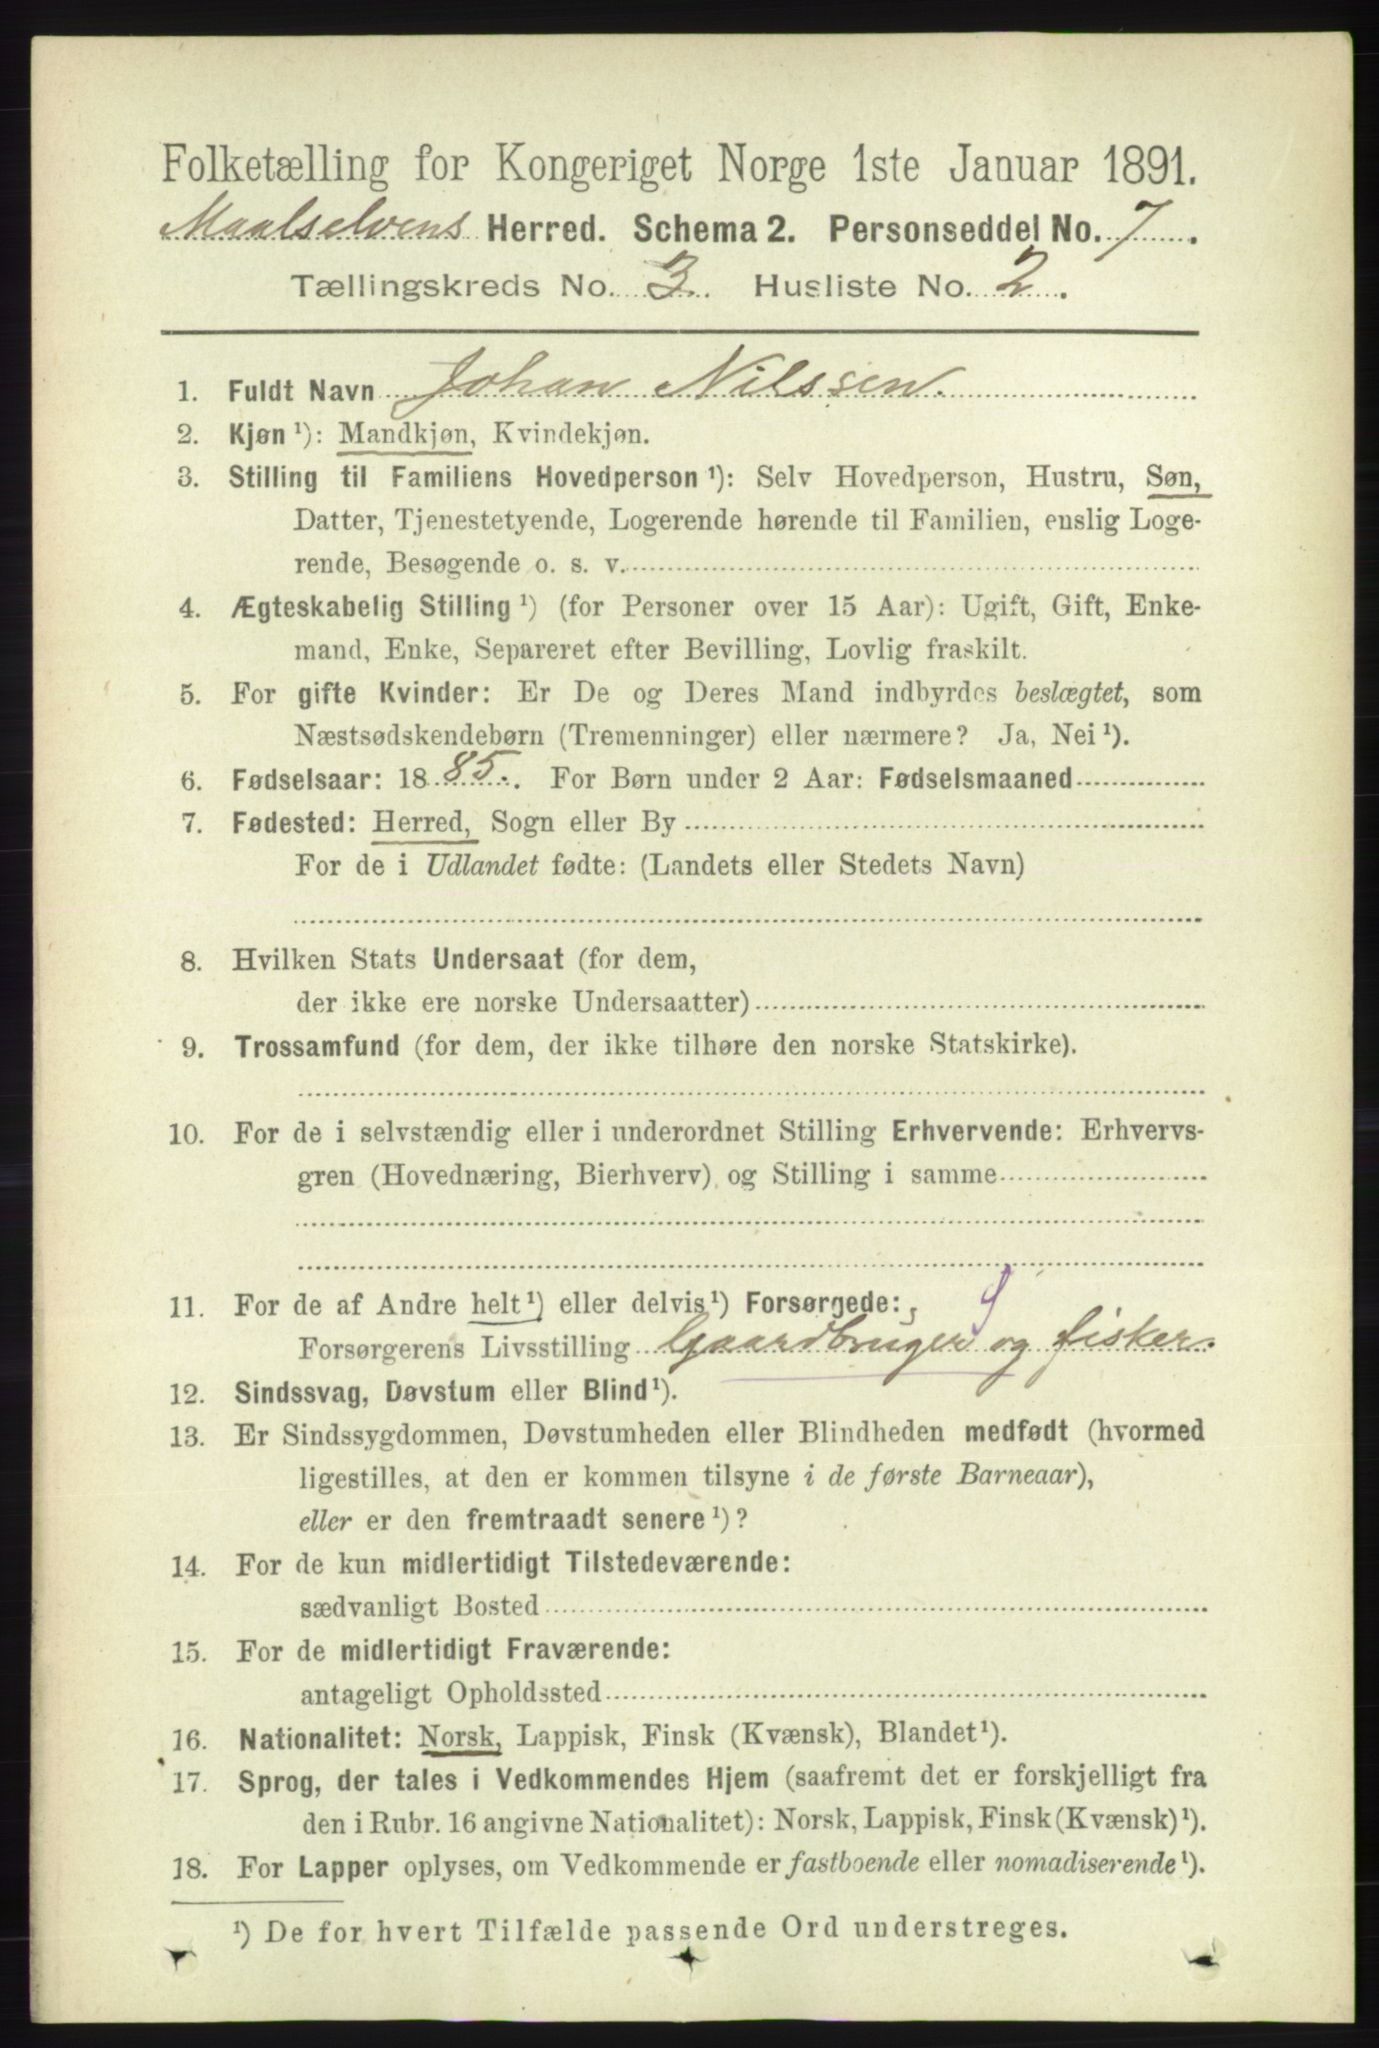 Folketælling for Kongeriget Norge 1ste Januar 1891.
Maalselvens Herred. Schema 2. Personseddel No. 7.
Tællingskreds No. 3. Husliste No. 2.
1. Fuldt Navn Johan Nilssen.
2. Kjøn ¹): Mandkjøn, Kvindekjøn.
3. Stilling til Familiens Hovedperson ¹): Selv Hovedperson, Hustru, Søn,
Datter, Tjenestetyende, Logerende hørende til Familien, enslig Loge-
rende, Besøgende o. s. v.
4. Ægteskabelig Stilling ¹) (for Personer over 15 Aar): Ugift, Gift, Enke-
mand, Enke, Separeret efter Bevilling, Lovlig fraskilt.
5. For gifte Kvinder: Er De og Deres Mand indbyrdes beslægtet, som
Næstsødskendebørn (Tremenninger) eller nærmere? Ja, Nei ¹).
6. Fødselsaar: 1885. For Børn under 2 Aar: Fødselsmaaned
7. Fødested: Herred, Sogn eller By
For de i Udlandet fødte: (Landets eller Stedets Navn)
8. Hvilken Stats Undersaat (for dem,
der ikke ere norske Undersaatter)
9. Trossamfund (for dem, der ikke tilhøre den norske Statskirke).
10. For de i selvstændig eller i underordnet Stilling Erhvervende: Erhvervs-
gren (Hovednæring, Bierhverv) og Stilling i samme
11. For de af Andre helt ¹) eller delvis ¹) Forsørgede:
Forsørgerens Livsstilling Gaardbruger og fisker.
12. Sindssvag, Døvstum eller Blind ¹).
13. Er Sindssygdommen, Døvstumheden eller Blindheden medfødt (hvormed
ligestilles, at den er kommen tilsyne i de første Barneaar),
eller er den fremtraadt senere ¹)?
14. For de kun midlertidigt Tilstedeværende:
sædvanligt Bosted
15. For de midlertidigt Fraværende:
antageligt Opholdssted
16. Nationalitet: Norsk, Lappisk, Finsk (Kvænsk), Blandet ¹).
17. Sprog, der tales i Vedkommendes Hjem (saafremt det er forskjelligt fra
den i Rubr. 16 angivne Nationalitet): Norsk, Lappisk, Finsk (Kvænsk) ¹).
18. For Lapper oplyses, om Vedkommende er fastboende eller nomadiserende ¹).
¹) De for hvert Tilfælde passende Ord understreges.